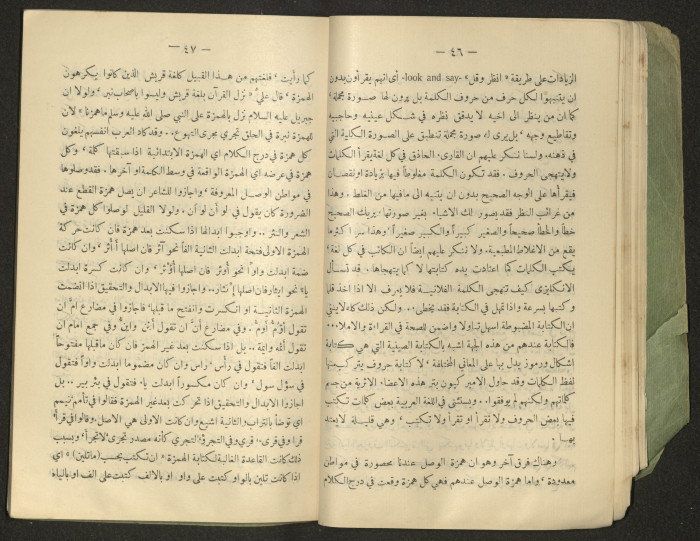 — ٤٦ —
الزيادات على طريقة « انظر وقل » -look and say- أي انهم يقرأون بدون
ان يتنبهوا لكل حرف من حروف الكلمة بل يرون لها صورة مجملة ،
كما ان من ينظر الى اخيه لا يدقق نظره في شكل عينيه وحاجبيه
وتقاطيع وجهه ، بل يرى له صورة مجملة تنطبق على الصورة الكلية التي
في ذهنه . ولسنا ننكر عليهم ان القارىء الحاذق في كل لغة يقرأ الكلمات
ولا يتهجى الحروف . فقد تكون الكلمة مغلوطاً فيها بزيادة او نقصان
فيقرأها على الوجه الصحيح بدون ان يتنبه الى ما فيها من الغلط . وهذا
من غرائب النظر فقد يصور لك الاشياء بغير صورتها . يريك الصحيح
خطأ والخطأ صحيحاً والصغير كبيراً والكبير صغيراً ، وهذا سر اكثر ما
يقع من الاغلاط المطبعية . ولا ننكر عليهم ايضاً ان الكاتب في كل لغة
يكتب الكلمات كما اعتادت يده كتابتها لا كما يتهجاها . قد تسأل
الانكليزي كيف تهجى الكلمة الفلانية فلا يعرف الا اذا اخذ قلمه
وكتبها بسرعة واذا تمهل في الكتابة فقد يخطىء .. ولكن ذلك كله لا ينفي
ان الكتابة المضبوطة اسهل تناولا واضمن للصحة في القراءة والاملاء ...
فالكتابة عندهم من هذه الجهة اشبه بالكتابة الصينية التي هي كتابة
اشكال ورموز يدل بها على المعاني المختلفة ، لا كتابة حروف يتركب منها
لفظ الكلمات وقد حاول الاميركيون بتر هذه الاعضاء الاثرية من جسم
كلماتهم ولكنهم لم يوفقوا . ويستثنى في اللغة العربية بعض كلمات تكتب
فيها بعض الحروف ولا تقرأ او تقرأ ولا تكتب ، وهي قليلة لا يعتد
بها .
وهناك فرق آخر وهو ان همزة الوصل عندنا محصورة في مواطن
معدودة ، واما همزة الوصل عندهم فهي كل همزة وقعت في درج الكلام
— ٤٧ —
كما رأيت ، فلغتهم من هذا القبيل كلغة قريش الذين كانوا يكرهون
الهمزة ، قال عليّ « نزل القرآن بلغة قريش وليسوا باصحاب نبر ، ولولا ان
جبريل عليه السلام نزل بالهمزة على النبي صلى الله عليه وسلم ما همزنا » لان
للهمزة نبرة في الحلق تجري مجرى التهوع .. وقد كاد العرب انفسهم يلغون
كل همزة في درج الكلام اي الهمزة الابتدائية اذا سبقتها كلمة ، وكل
همزة في عرضه اي الهمزة الواقعة في وسط الكلمة او آخرها . فقد وصلوها
في مواطن الوصل المعروفة ، واجازوا للشاعر ان يصل همزة القطع عند
الضرورة كأن يقول في لو أن لو ان . ولولا القليل لوصلوا كل همزة في
الشعر والنثر .. واوجبوا ابدالها اذا سكنت بعد همزة فان كانت حركة
الهمزة الاولى فتحة ابدلت الثانية الفاً نحو آثر فان اصلها أأثر ، وان كانت
ضمة ابدلت واواً نحو أوثر فان اصلها أؤثر ، وان كانت كسرة ابدلت
ياء نحو ايثار فان اصلها إئثار .. واجازوا فيها الابدال والتحقيق اذا انضمت
الهمزة الثانية او انكسرت وانفتح ما قبلها ، فاجازوا في مضارع أمَّ ان
تقول أؤم وأوم . وفي مضارع أنَّ ان تقول أئن واين وفي جمع امام ان
تقول أئمة وايمة .. بل اذا سكنت بعد غير الهمز فان كان ما قبلها مفتوحاً
ابدلت الفاً فتقول في رأس ، راس وان كان مضموماً ابدلت واواً فتقول
في سؤل سول ، وان كان مكسوراً ابدلت ياء فتقول في بئر بير .. بل
اجازوا الابدال والتحقيق اذا تحركت بعد غير الهمزة فقالوا في تأمم تيمم
اي توضأ بالتراب ، الثانية اشيع وان كانت الاولى هي الاصل ، وقالوا في قرأ
قرا وفي قرىء ، قري وفي التجرؤ التجري كأنه مصدر تجرى لا تجرأ ، وبسبب
ذلك كانت القاعدة الغالبة لكتابة الهمزة « ان تكتب بحسب ( ما تلين ) » اي
اذا كانت تلين بالواو كتبت على واو او بالالف كتبت على الف او بالياء